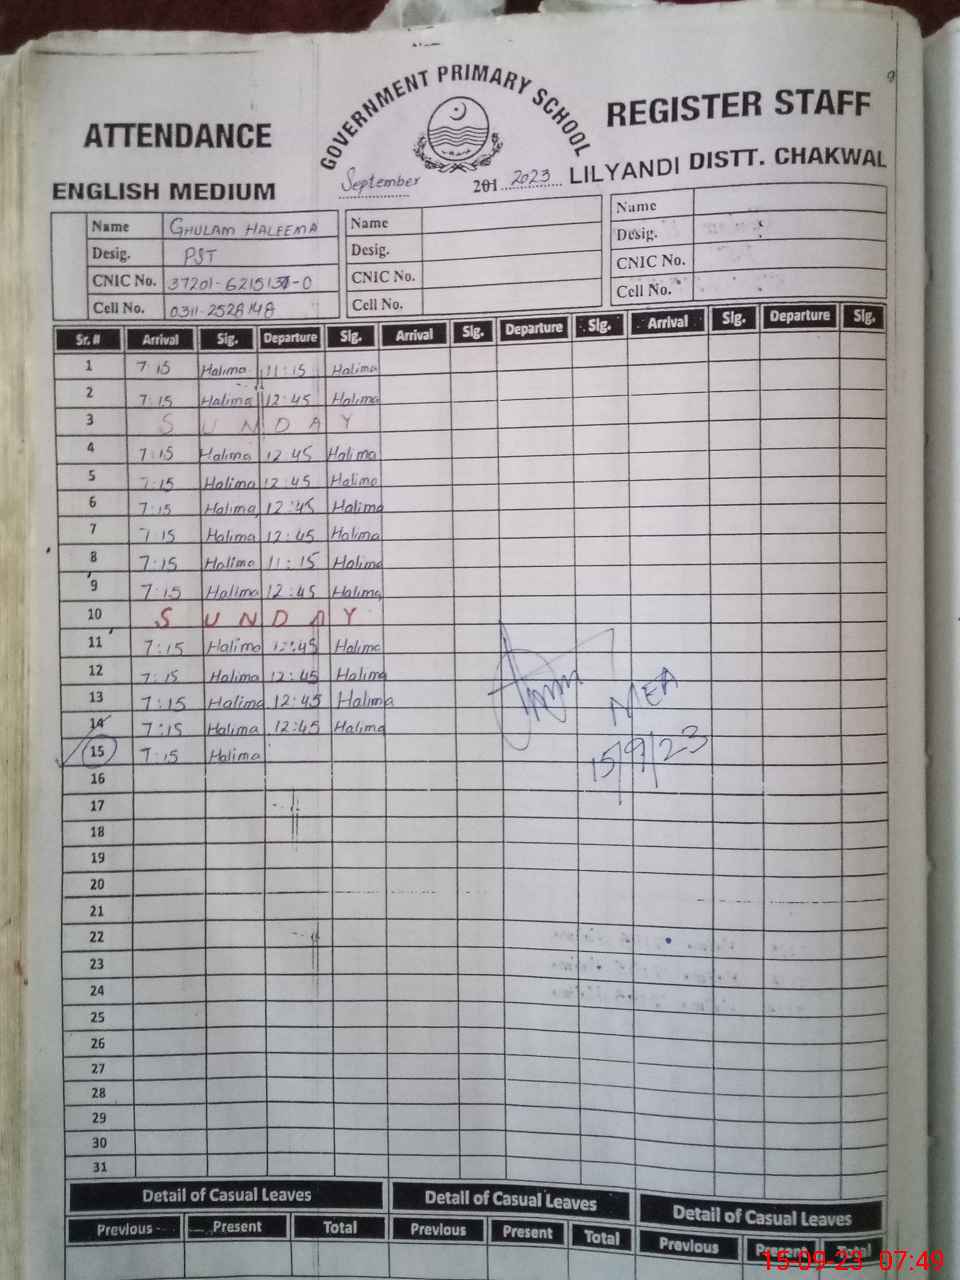 GOVERNMENT PRIMARY SCHOOL
ATTENDANCE REGISTER STAFF
ENGLISH MEDIUM September 201 2023 LILYANDI DISTT. CHAKWAL
9
Name GHULAM HALEEMA Name Name
Desig. PST Desig. Desig.
CNIC No. CNIC No. CNIC No.
Cell No. 0311-2528148 Cell No. Cell No.
Sr. # Arrival Sig. Departure Sig. Arrival Sig. Departure Sig. Arrival Sig. Departure Sig.
1 7:15 Halima 11:15 Halima
2 7:15 Halima 12:45 Halima
3 S U N D A Y
4 7:15 Halima 12 45 Halima
5 7:15 Halima 12:45 Halima
6 7:15 Halima 12:45 Halima
7 7:15 Halima 12:45 Halima
8 7:15 Halima 11:15 Halima
9 7:15 Halima 12:45 Halima
10 S U N D A Y
11 7:15 Halima 12:45 Halima
12 7:15 Halima 12:45 Halima
13 7:15 Halima 12:45 Halima
14 7:15 Halima 12:45 Halima
MEA
15 7:15 Halima
15/9/23
16
17
18
19
20
21
22
23
24
25
26
27
28
29
30
31
Detail of Casual Leaves Detail of Casual Leaves Detail of Casual Leaves
Previous Present Total Previous Present Total Previous Present Total
15-09-23 07:49